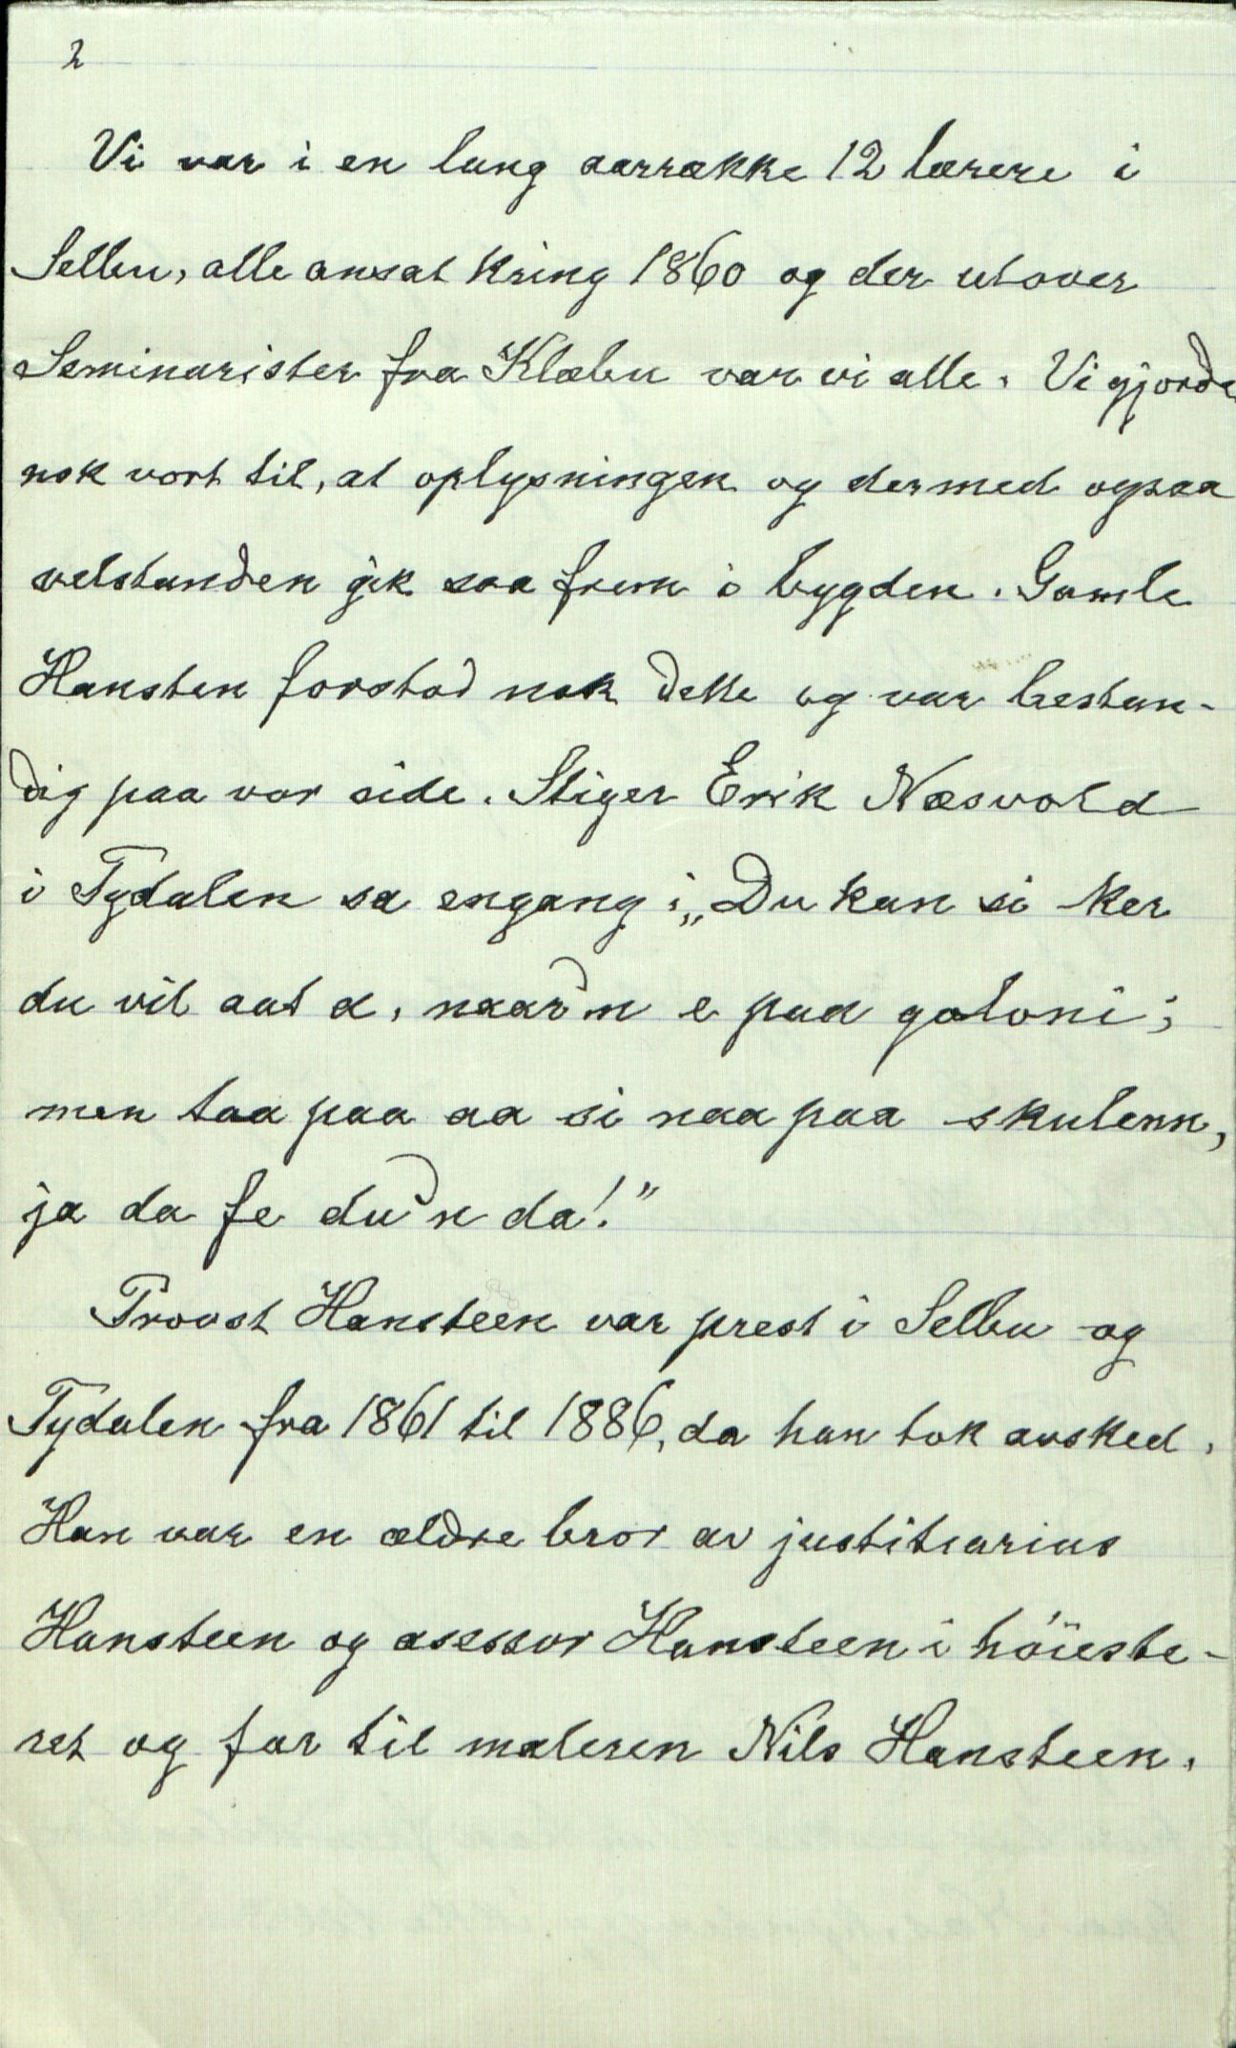 2
Vi var i en lang aarrække 12 lærere i
Selbu, alle ansat kring 1860 og der utover
Seminarister fra Klæbu var vi alle. Vi gjorde
nok vort til, at oplysningen og dermed ogsaa
velstanden gik saa frem i bygden. Gamle
Hansten forstod nok dette og var bestan-
dig paa vor side. Stiger Erik Næsvold
i Tydalen sa engang: „Du kan si ker
du vil aat a, naar'n e paa gatoni;
men taa paa aa si naa paa skulenn,
ja da fe du'n da!"
Provst Hansteen var prest i Selbu og
Tydalen fra 1861 til 1886, da han tok avsked.
Han var en ældre bror av justitiarius
Hansteen og asessor Hansteen i höieste-
ret og far til maleren Nils Hansteen.